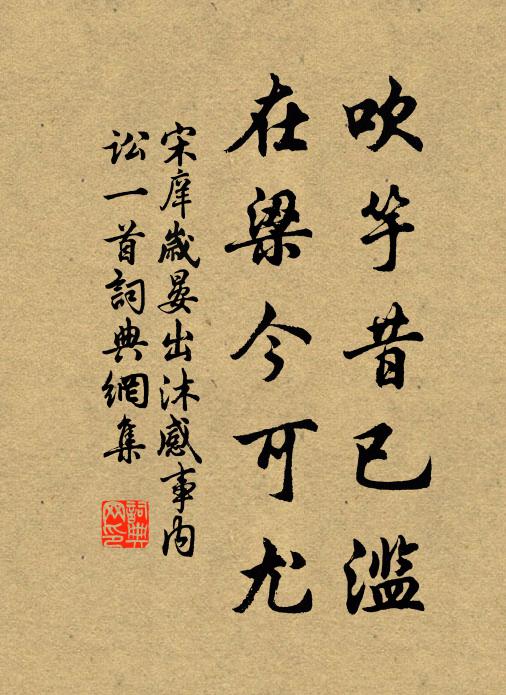 吹竽昔已滥
在梁今可尤
宋庠歲晏出沐感事内
訟一首詞典網集
詞典
网印